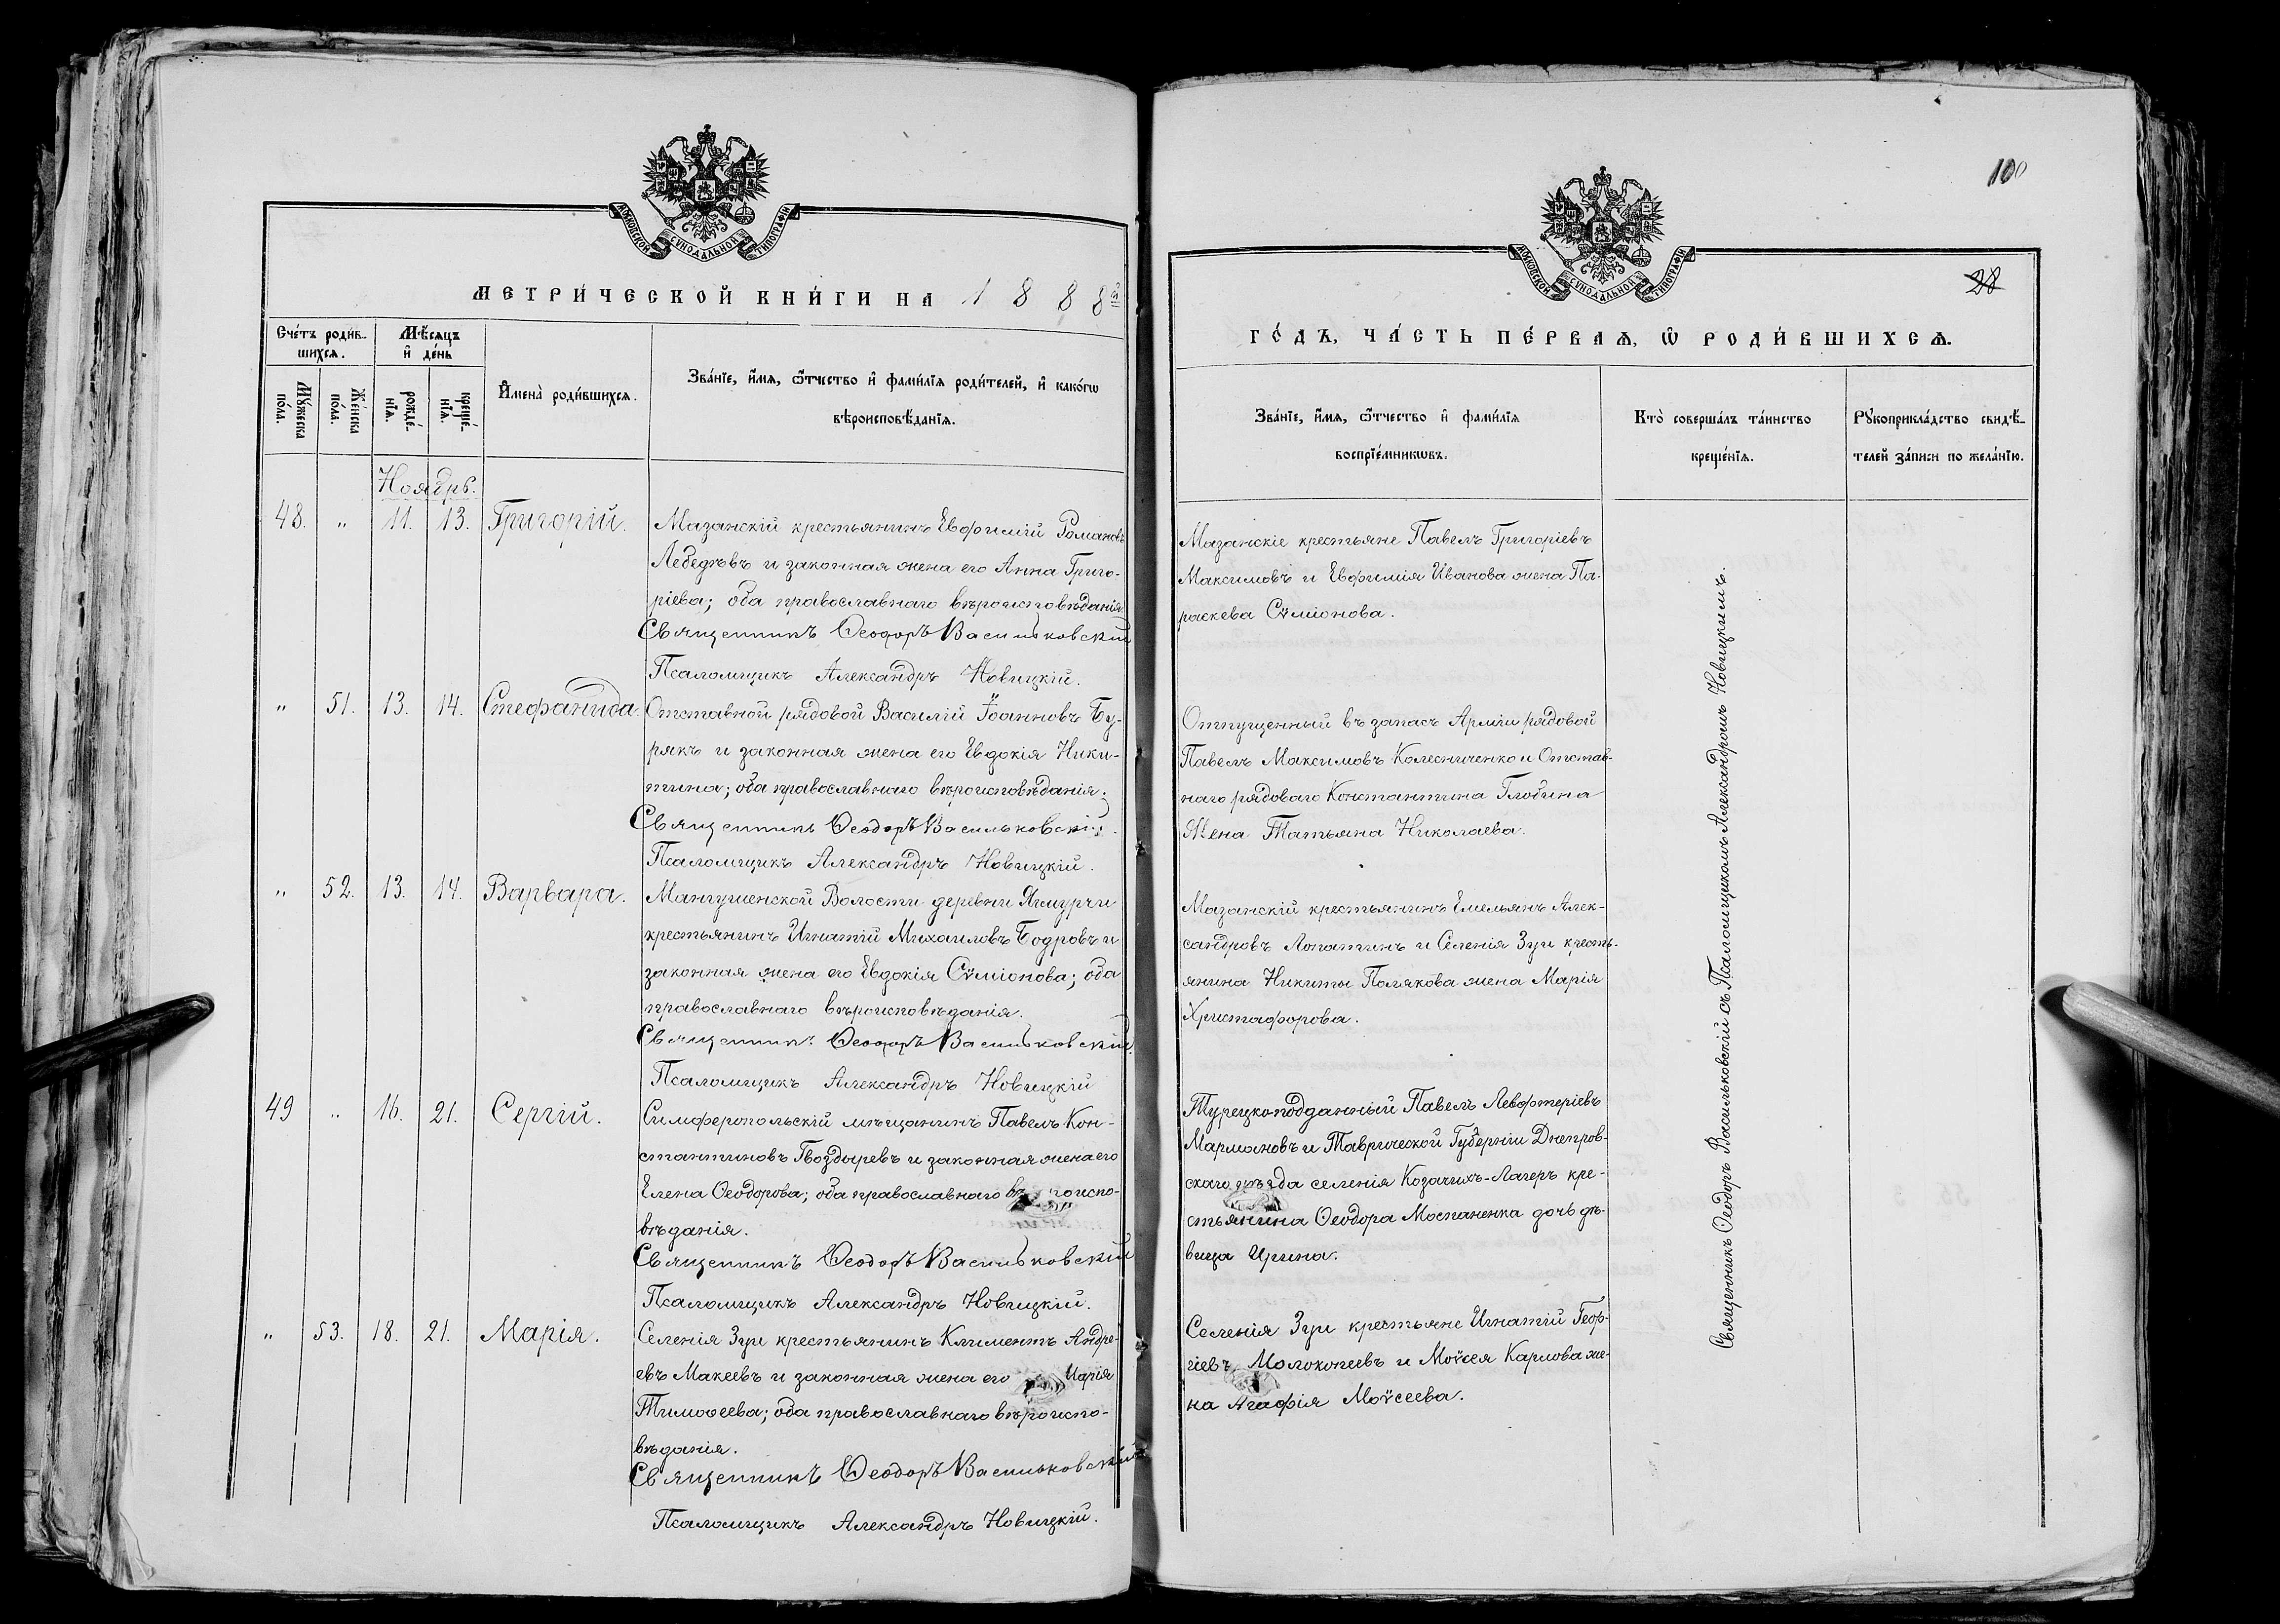 МОСКОВСКОЙ СѴНОДАЛЬНОЙ ТИПОГРАФІИ
МЕТРИ́ЧЕСКОЙ КНИ́ГИ НА 1888й
Сче́тъ роди́в-
шихсѧ.
Мѣ́сѧцъ
и҆ де́нь
Мꙋ́жеска
по́ла.
Же́нска
по́ла.
рожде́-
нїѧ.
креще́-
нїѧ.
И҆мена̀ роди́вшихсѧ.
Зва́нїе, и҆́мѧ, ѻ҆́тчество и҆ фами́лїѧ роди́телей, и҆ како́гѡ
вѣроисповѣ́данїѧ.
Ноябрь.
48. " 11. 13. Григорій.
Мазанскій крестьянинъ Евфимій Романовъ
Лебедѣвъ и законная жена его Анна Григо-
ріева; оба православнаго вѣроисповѣданія
Священникъ Ѳеодоръ Васильковскій
Псаломщикъ Александръ Новицкій.
" 51. 13. 14. Стефанида.
Отставной рядовой Василій Іоанновъ Бу-
рякъ и законная жена его Евдокія Ники-
тина; оба православнаго вѣроисповѣданія.
Священникъ Ѳеодоръ Васильковскій.
Псаломщикъ Александръ Новицкій.
" 52. 13. 14. Варвара.
Мангушенской Волости деревни Ямурчи
крестьянинъ Игнатій Михаиловъ Бодровъ и
законная жена его Евдокія Сѵміонова; оба
православнаго вѣроисповѣданія.
Священникъ Ѳеодоръ Васильковскій.
Псаломщикъ Александръ Новицкій
49 " 16. 21. Сергій.
Симферопольскій мѣщанинъ Павелъ Кон-
стантиновъ Гвоздыревъ и законная жена его
Елена Ѳеодорова; оба православнаго вѣроиспо-
вѣданія.
Священникъ Ѳеодоръ Васильковскій
Псаломщикъ Александръ Новицкій.
" 53. 18. 21. Марія.
Селенія Зуи крестьянинъ Климентъ Андре-
евъ Макеевъ и законная жена его Марія
Тимоѳеева; оба православнаго вѣроиспо-
вѣданія.
Священникъ Ѳеодоръ Васильковскій
Псаломщикъ Александръ Новицкій.
100
28
МОСКОВСКОЙ СѴНОДАЛЬНОЙ ТИПОГРАФІИ
ГО́ДЪ, ЧА́СТЬ ПЕ́РВАѦ, Ѡ҆ РОДИ́ВШИХСѦ.
Зва́нїе, и҆́мѧ, ѻ҆́тчество и҆ фами́лїѧ
воспрїе́мникѡвъ.
Кто̀ соверша́лъ та́инство
креще́нїѧ.
Рꙋкоприкла́дство свидѣ́-
телей за́писи по жела́нїю.
Мазанскіе крестьяне Павелъ Григоріевъ
Максимовъ и Евфимія Иванова жена Па-
раскева Сѵміонова.
Отпущенный въ запасъ Арміи рядовой
Павелъ Максимовъ Колесниченко и Отстав-
наго рядоваго Константина Глобина
жена Татьяна Николаева.
Мазанскій крестьянинъ Емельянъ Алек-
сандровъ Лопатинъ и Селенія Зуи кресть-
янина Никиты Полякова жена Марія
Христофорова.
Турецкоподданный Павелъ Левфтеріевъ
Мармановъ и Таврической Губерніи Днепров-
скаго уѣзда селенія Козачихъ-Лагеръ кре-
стьянина Ѳеодора Моспаненка дочь дѣ-
вица Ирина.
Селенія Зуи крестьяне Игнатій Геор-
гіевъ Молокопеевъ и Моѵсея Карпова же-
на Агафія Моѵсеева.
Священникъ Ѳеодоръ Васильковскій съ Псаломщикомъ Александромъ Новицкимъ.